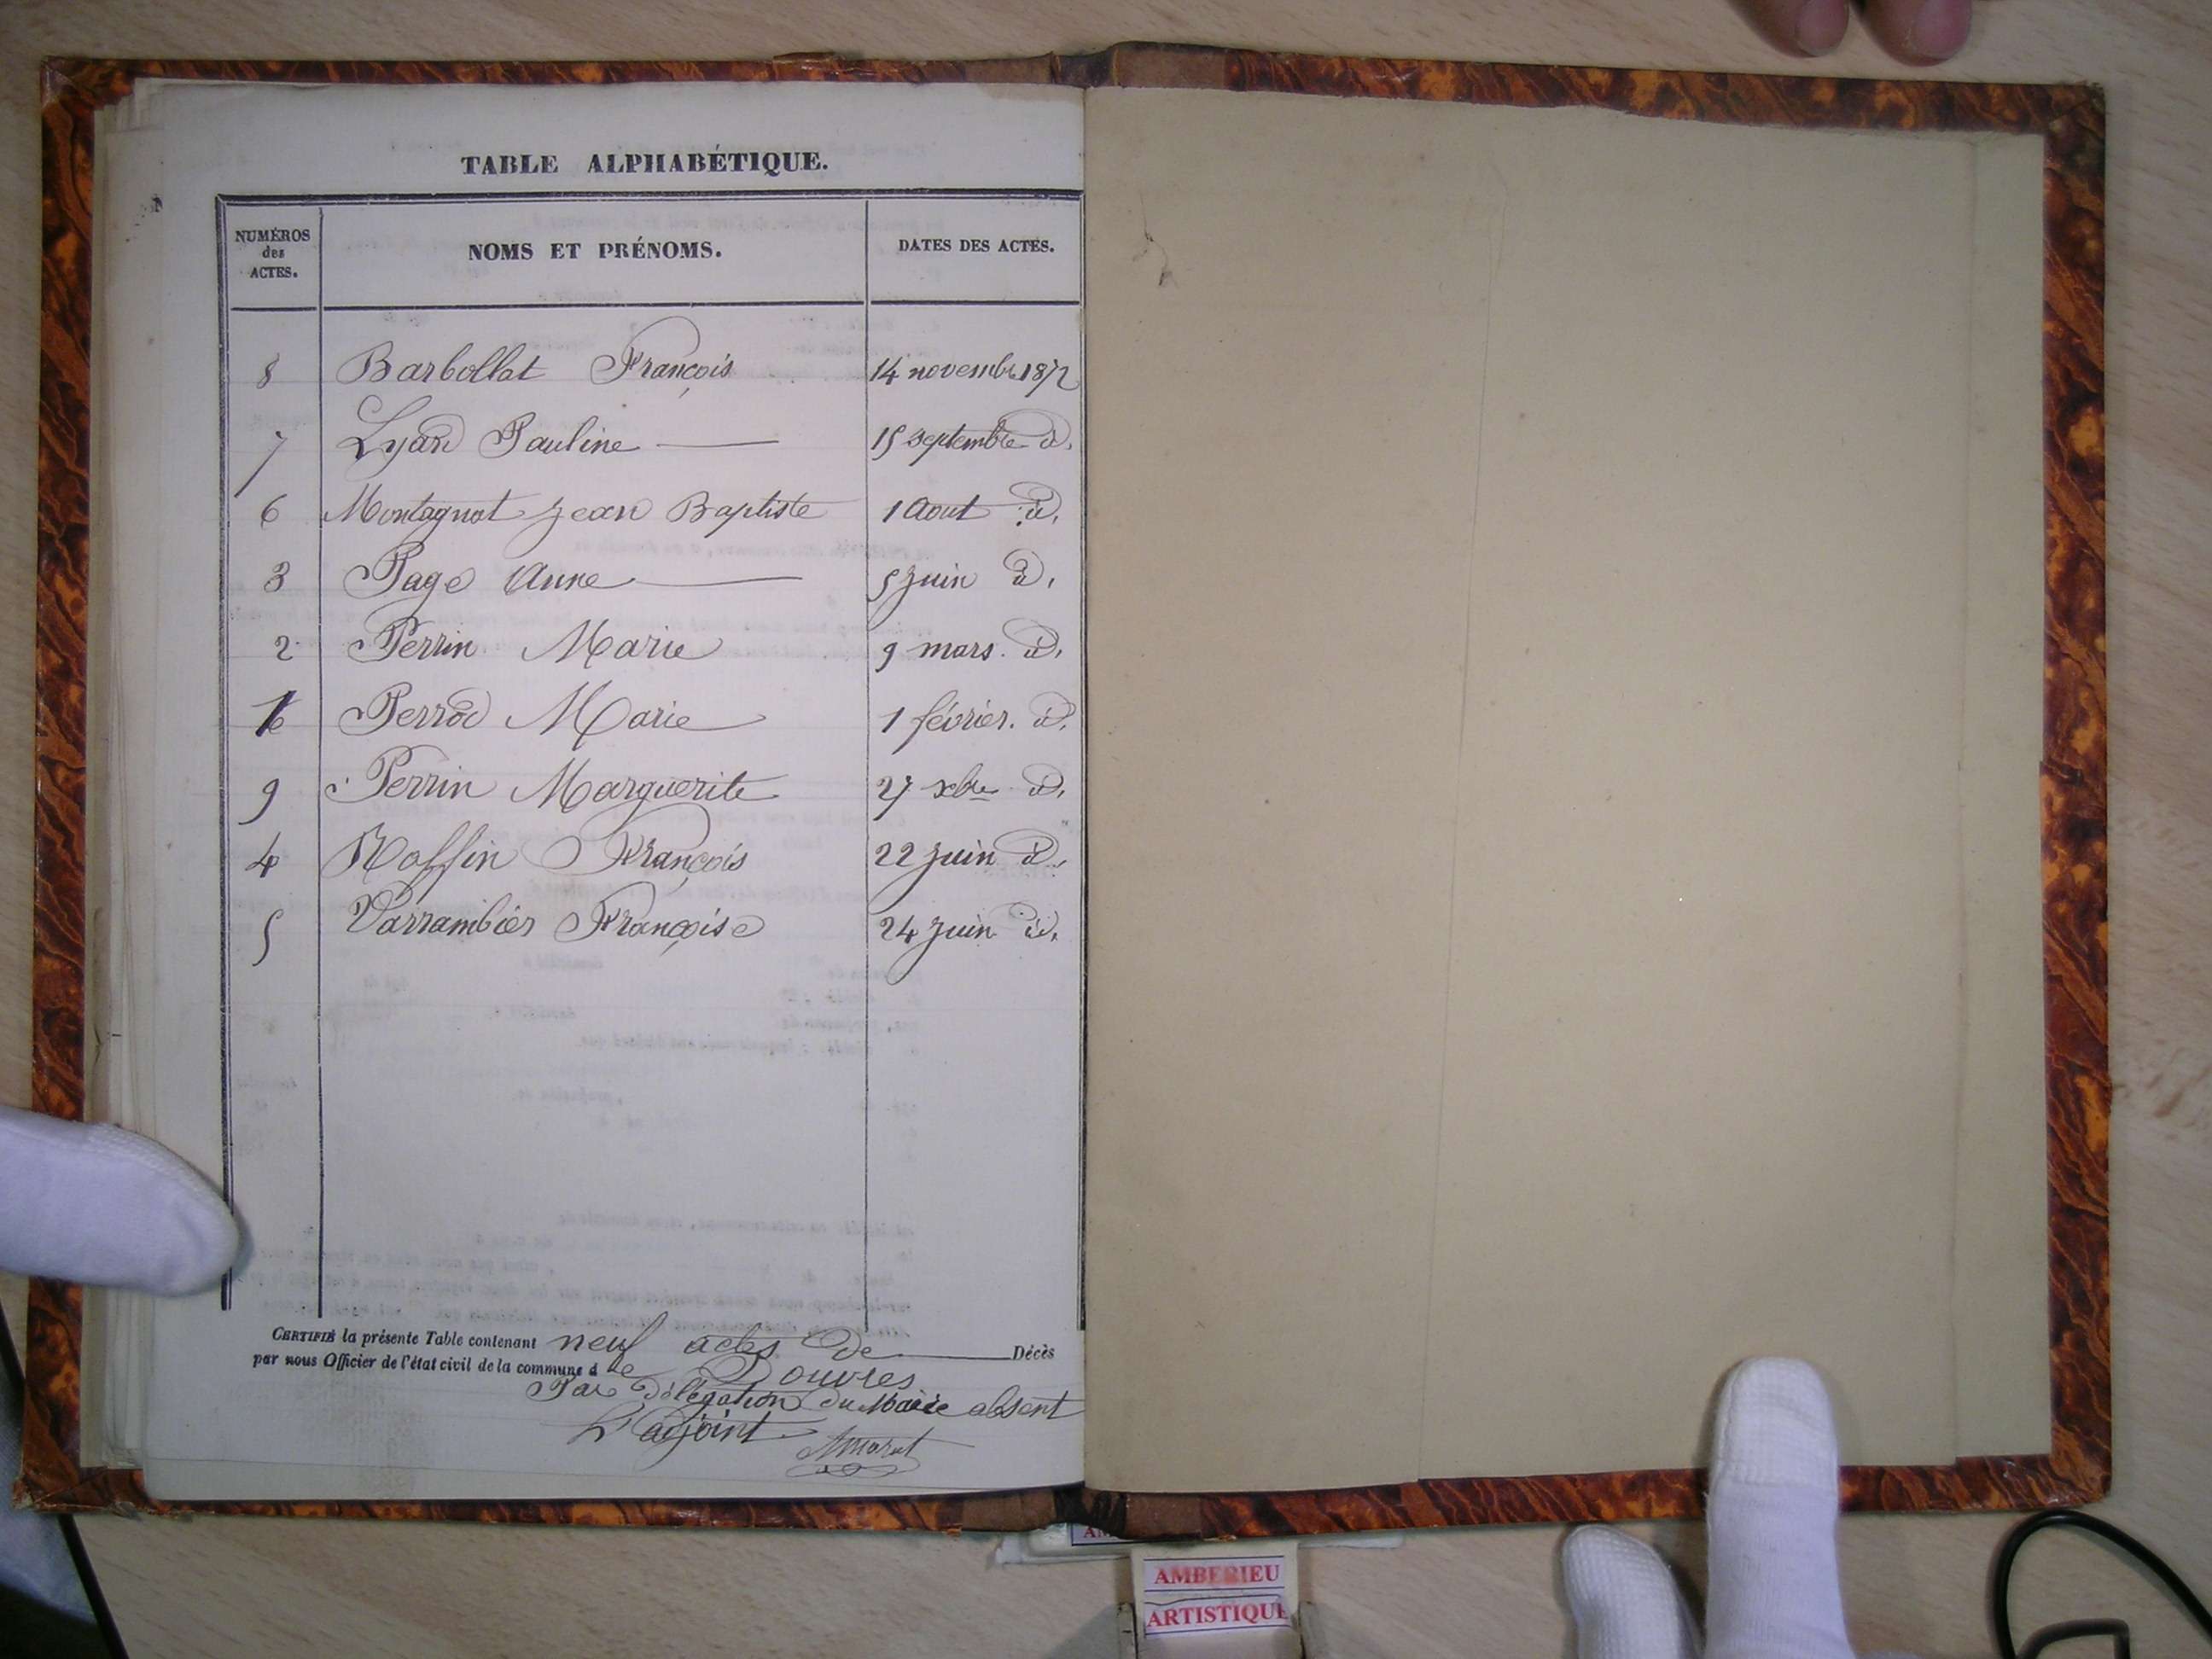 TABLE ALPHABÉTIQUE.
NUMÉROS des ACTES. NOMS ET PRÉNOMS. DATES DES ACTES.
8 Barbollat François 14 novembre 1872
7 Lyand Pauline 15 septembre d.
6 Montagnat Jean Baptiste 1 Aout d.
3 Page Anne 5 juin d.
2 Perrin Marie 9 mars d.
1 Perrod Marie 1 février. d.
9 Perrin Marguerite 27 xbre d.
4 Roffin François 22 juin d.
5 Varrambier Françoise 24 juin d.
CERTIFIÉ la présente Table contenant neuf actes de Décès
par nous Officier de l'état civil de la commune d e Douvres
Par délégation du Maire absent
L'adjoint
AMBERIEU
ARTISTIQUE